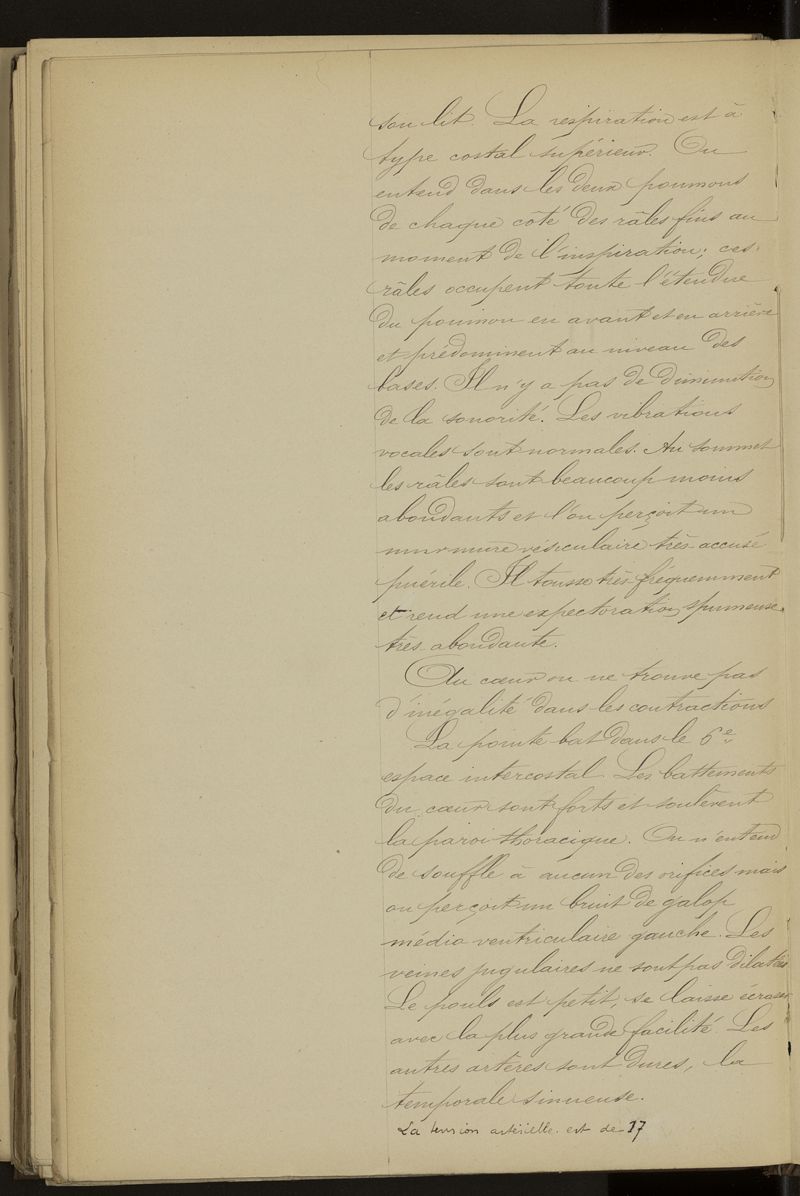 son lit. La respiration est à
type costal supérieur. On
entend dans les deux poumons
de chaque côté des râles fins au
moment de l'inspiration; ces
râles occupent toute l'étendue
du poumon en avant et en arrière
et prédominent au niveau des
bases. Il n'y a pas de diminution
de la sonorité. Les vibrations
vocales sont normales. Au sommet
les râles sont beaucoup moins
abondants et l'on perçoit un
murmure vésiculaire très accusé
puérile. Il tousse très fréquemment
et rend une expectoration spumeuse
très abondante.
Au cœur on ne trouve pas
d'inégalité dans les contractions
La pointe bat dans le 6e
espace intercostal. Les battements
du cœur sont forts et soulèvent
la paroi thoracique. On n'entend
de souffle à aucun des orifices mais
on perçoit un bruit de galop
médio ventriculaire gauche. Les
veines jugulaires ne sont pas dilatées
Le pouls est petit, se laisse écraser
avec la plus grande facilité. Les
autres artères sont dures, la
temporale sinueuse.
La tension artérielle est de 17